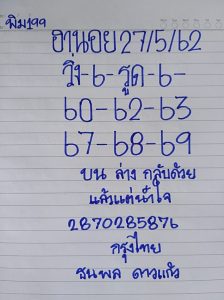 พิม199
ฮานอย27/5/62
วิ่ง-6-รูด-6-
60-62-63
67-68-69
บน ล่าง กลับด้วย
แล้วแต่น้ำใจ
2870285876
กรุงไทย
ธนพล ดาวแก้ว